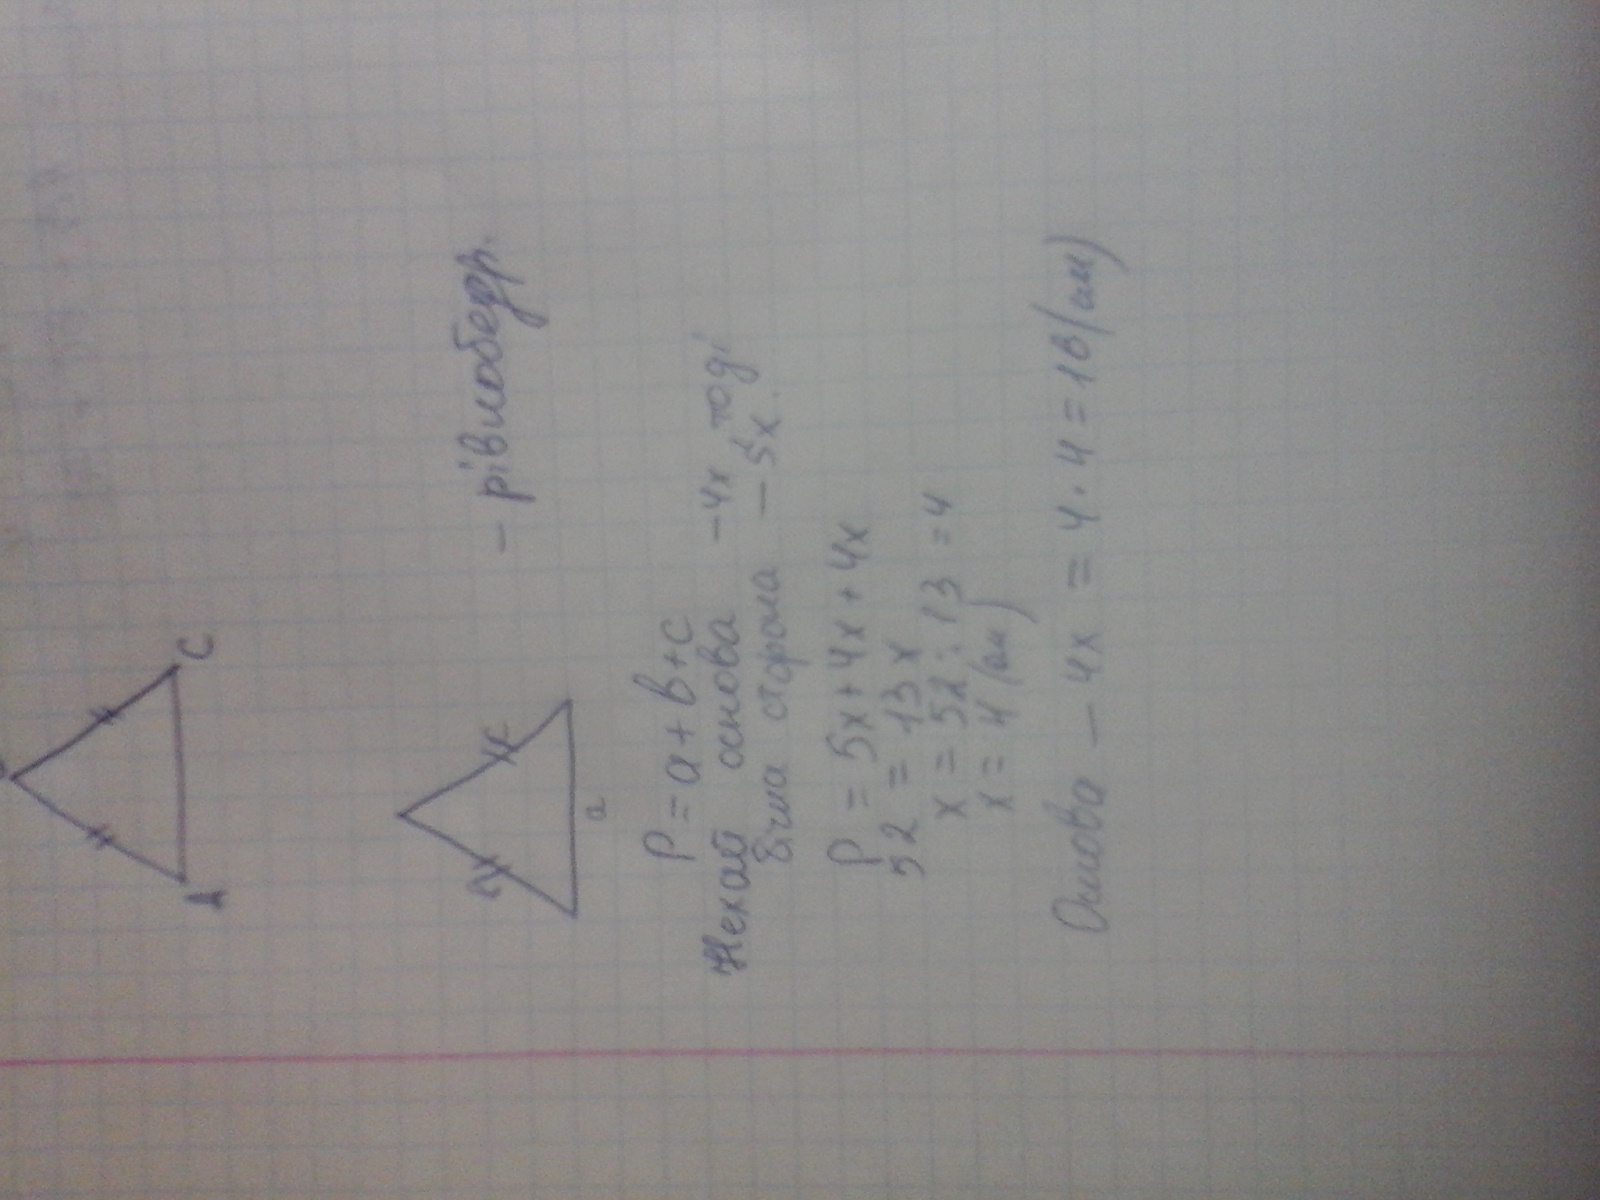 A C
– рівнобедр.
a
P = a + b + c
Нехай основа – 4x тоді
бічна сторона – 5x.
P = 5x + 4x + 4x
52 = 13x
x = 52 : 13 = 4
x = 4 (см)
Основа – 4x = 4 · 4 = 16 (см)